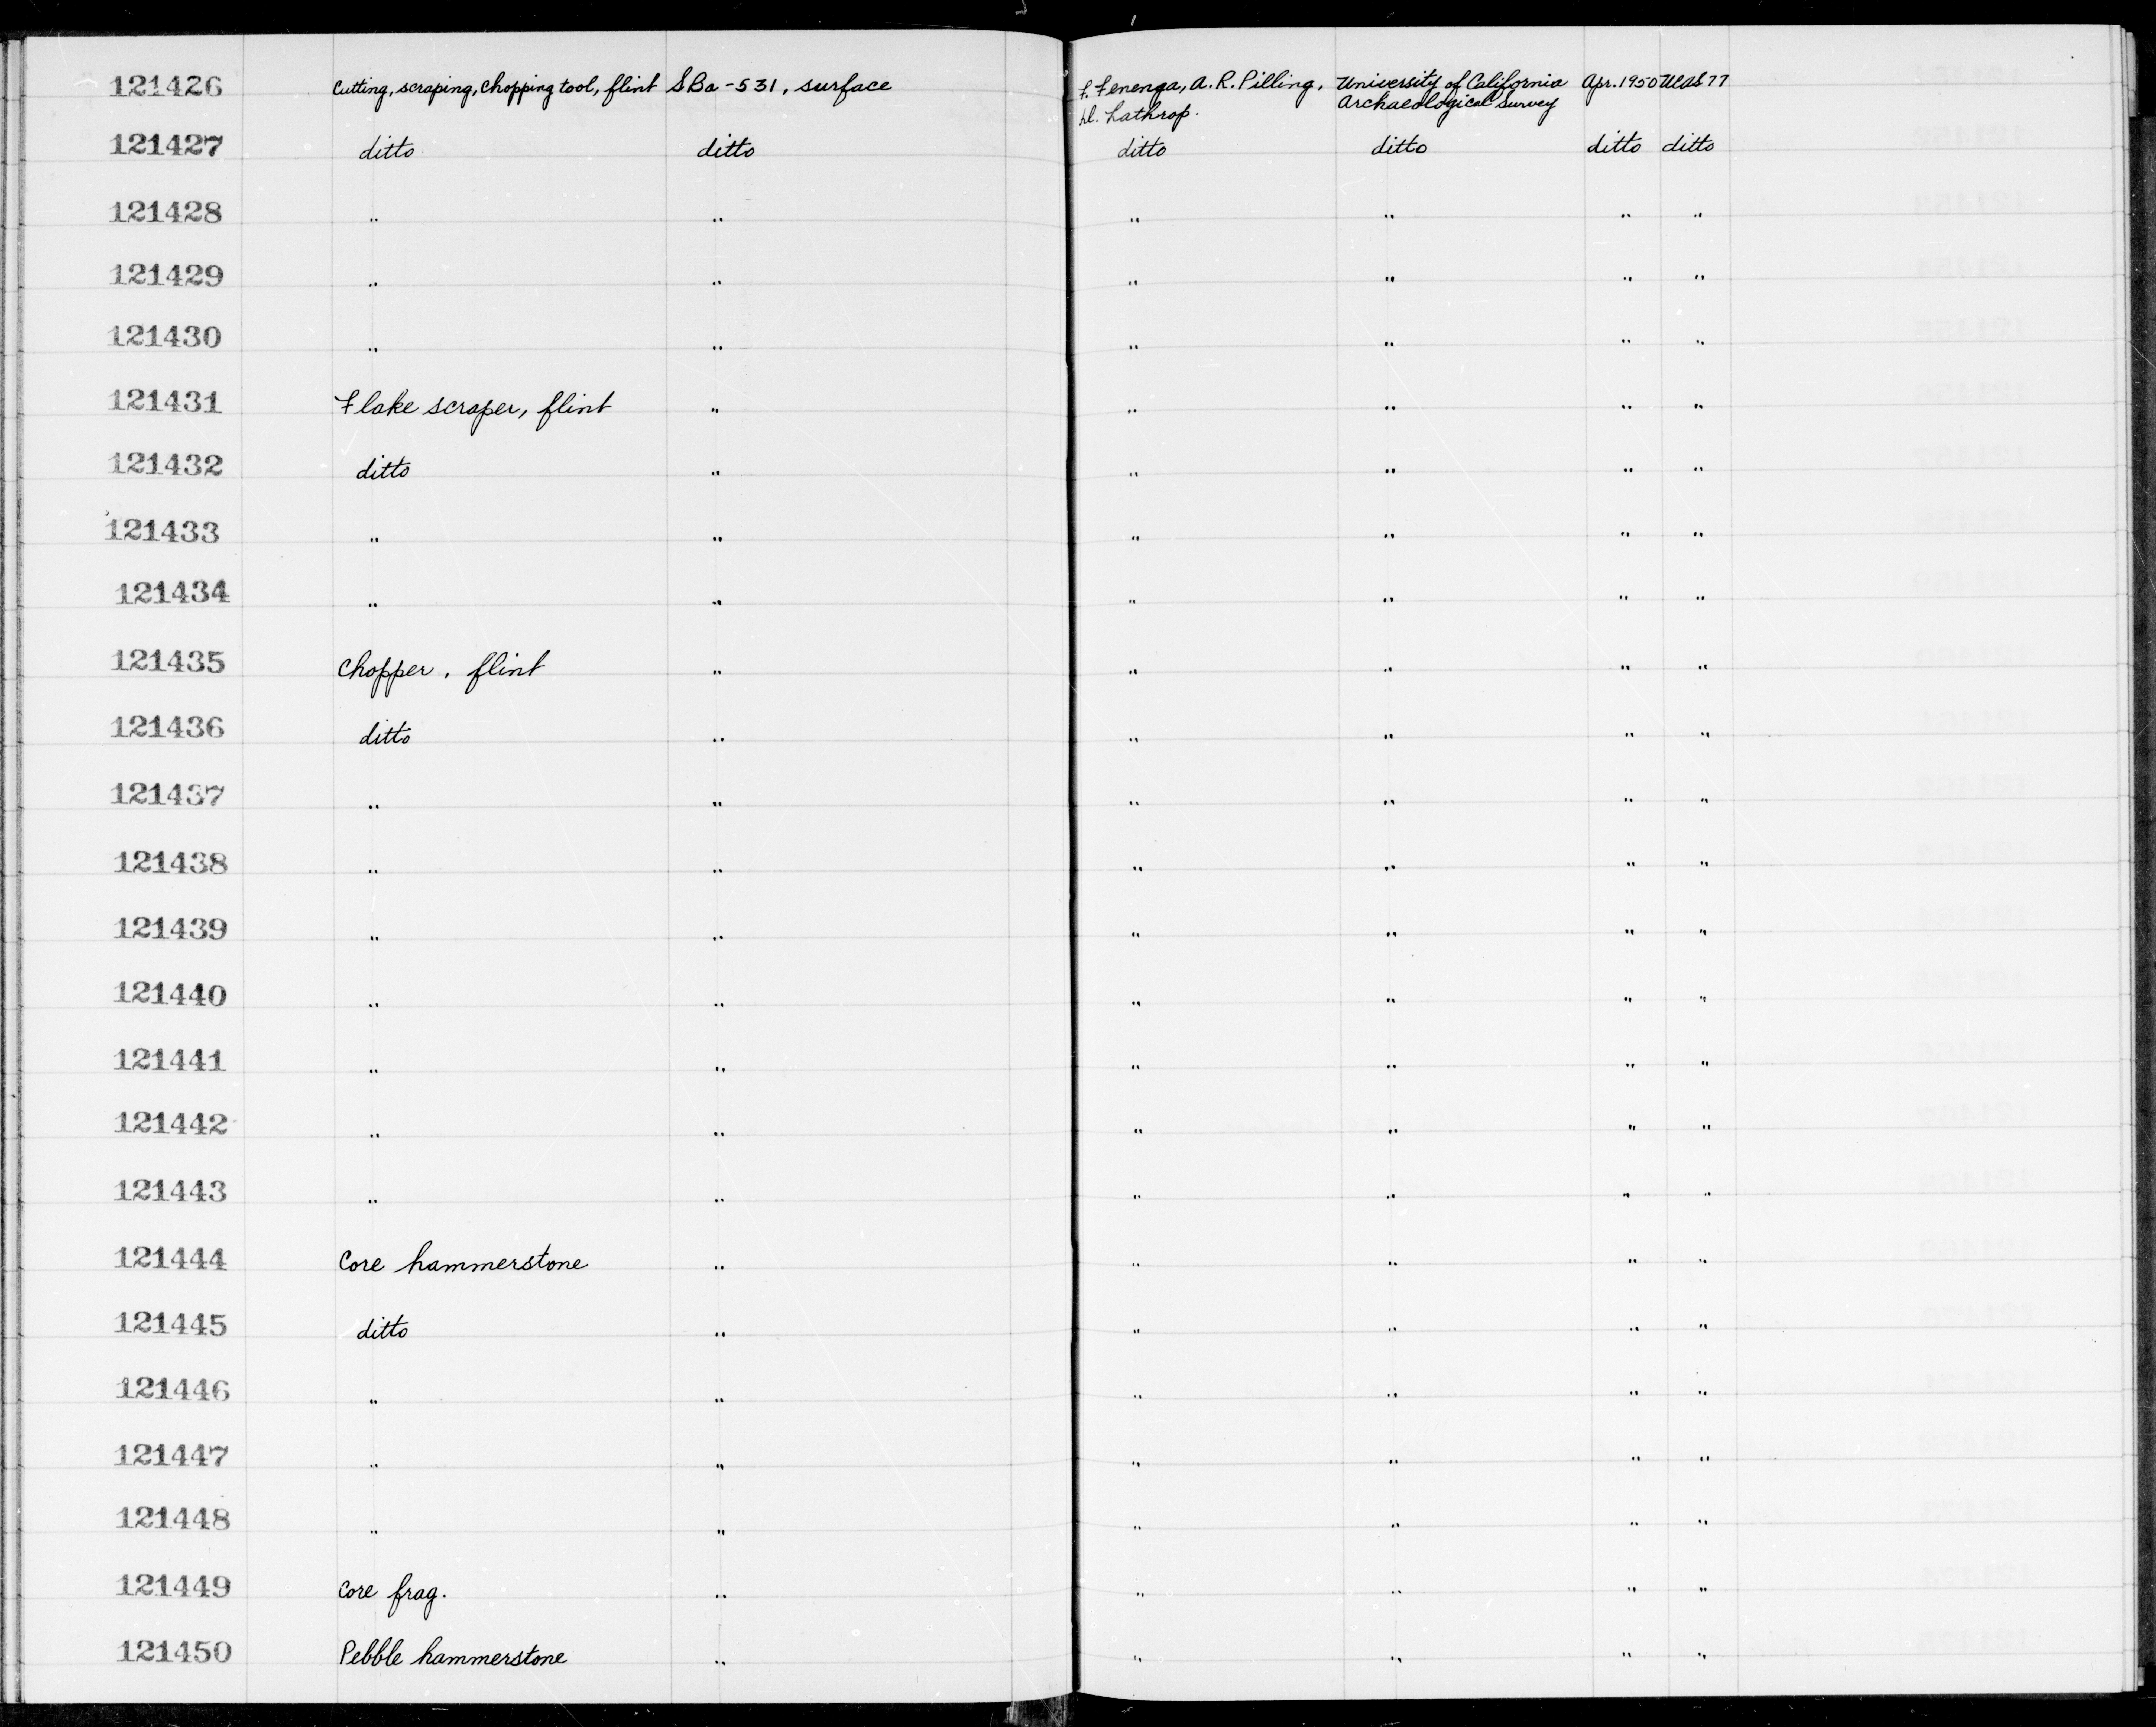 121426 Cutting, scraping, chopping tool, flint SBa-531, surface F. Fenenga, A. R. Pilling, University of California Apr. 1950 UCAS 77
Lathrop. Archaeological Survey
121427 ditto ditto ditto ditto ditto ditto
121428 " " " " " "
121429 " " " " " "
121430 " " " " " "
121431 Flake scraper, flint " " " " "
121432 ditto " " " " "
121433 " " " " " "
121434 " " " " " "
121435 Chopper, flint " " " " "
121436 ditto " " " " "
121437 " " " " " "
121438 " " " " " "
121439 " " " " " "
121440 " " " " " "
121441 " " " " " "
121442 " " " " " "
121443 " " " " " "
121444 Core hammerstone " " " " "
121445 ditto " " " " "
121446 " " " " " "
121447 " " " " " "
121448 " " " " " "
121449 Core frag. " " " " "
121450 Pebble hammerstone " " " " "